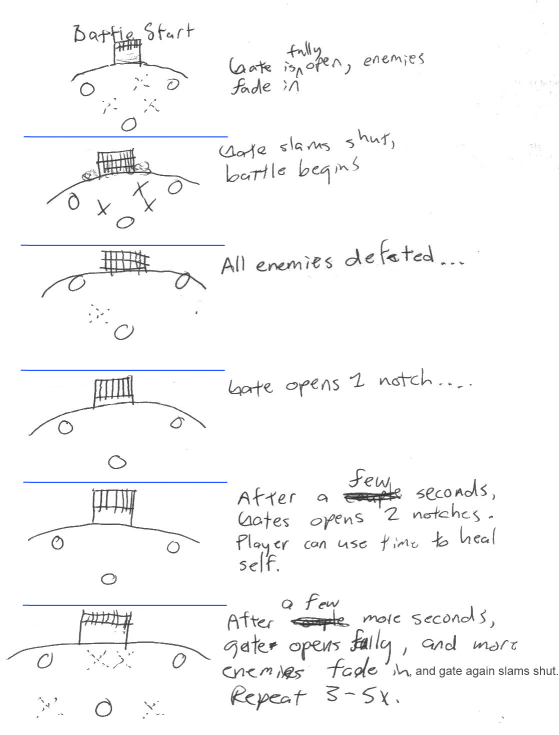 Battle Start
Gate is fully open, enemies
fade in
Gate slams shut,
battle begins
All enemies defeted...
Gate opens 1 notch....
After a few seconds,
Gates opens 2 notches.
Player can use time to heal
self.
After a few more seconds,
gate opens fully, and more
enemies fade in, and gate again slams shut.
Repeat 3-5x.